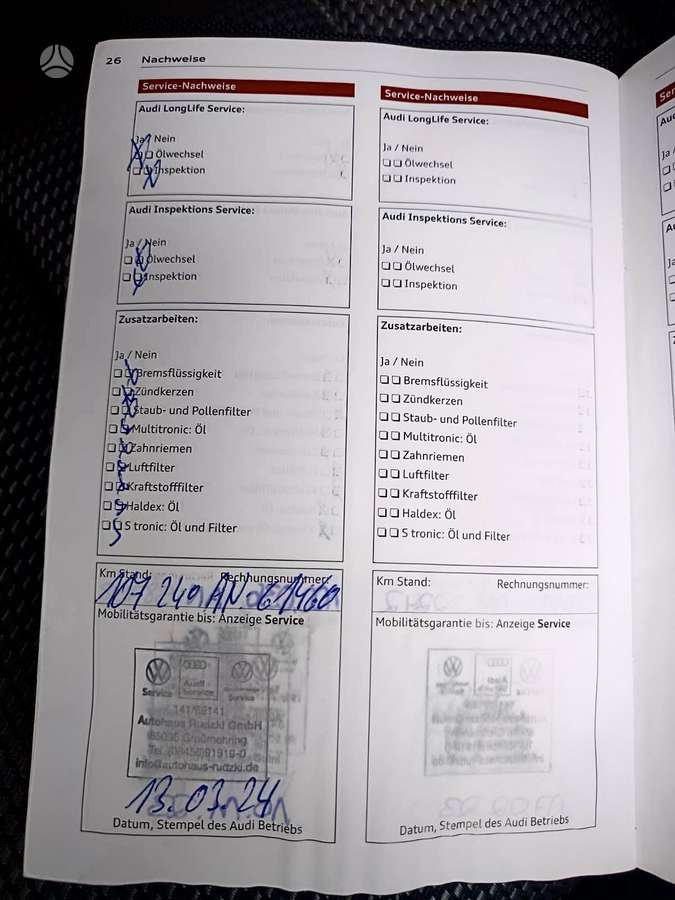 26 Nachweise
Service-Nachweise
Audi LongLife Service:
Ja / Nein
Ölwechsel
Inspektion
Audi Inspektions Service:
Ja / Nein
Ölwechsel
Inspektion
Zusatzarbeiten:
Ja / Nein
Bremsflüssigkeit
Zündkerzen
Staub- und Pollenfilter
Multitronic: Öl
Zahnriemen
Luftfilter
Kraftstofffilter
Haldex: Öl
S tronic: Öl und Filter
Km Stand: Rechnungsnummer:
107 240
Mobilitätsgarantie bis: Anzeige Service
Service Audi Service
Autohaus Rudzki GmbH
info@autohaus-rudzki.de
13.03.24
Datum, Stempel des Audi Betriebs
Service-Nachweise
Audi LongLife Service:
Ja / Nein
Ölwechsel
Inspektion
Audi Inspektions Service:
Ja / Nein
Ölwechsel
Inspektion
Zusatzarbeiten:
Ja / Nein
Bremsflüssigkeit
Zündkerzen
Staub- und Pollenfilter
Multitronic: Öl
Zahnriemen
Luftfilter
Kraftstofffilter
Haldex: Öl
S tronic: Öl und Filter
Km Stand: Rechnungsnummer:
Mobilitätsgarantie bis: Anzeige Service
Datum, Stempel des Audi Betriebs